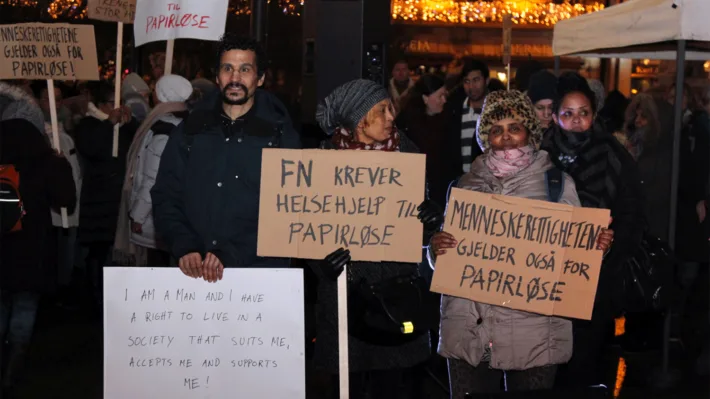 MENNESKERETTIGHETENE
GJELDER OGSÅ FOR
PAPIRLØSE!
STOR
TIL
PAPIRLØSE
FN KREVER
HELSEHJELP TIL
PAPIRLØSE
MENNESKERETTIGHETENE
GJELDER OGSÅ FOR
PAPIRLØSE
I AM A MAN AND I HAVE
A RIGHT TO LIVE IN A
SOCIETY THAT SUITS ME,
ACCEPTS ME AND SUPPORTS
ME!